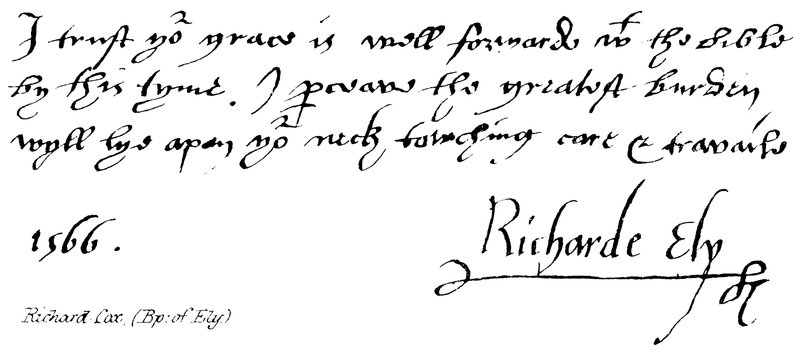 I trust yoʳ grace is well forwarde wᵗ the bible
by this tyme. I ꝑceave the greatest burden
wyll lye apon yoʳ neck towching care & travaile
1566.
Richarde Ely
Richard Cox, (Bp: of Ely)